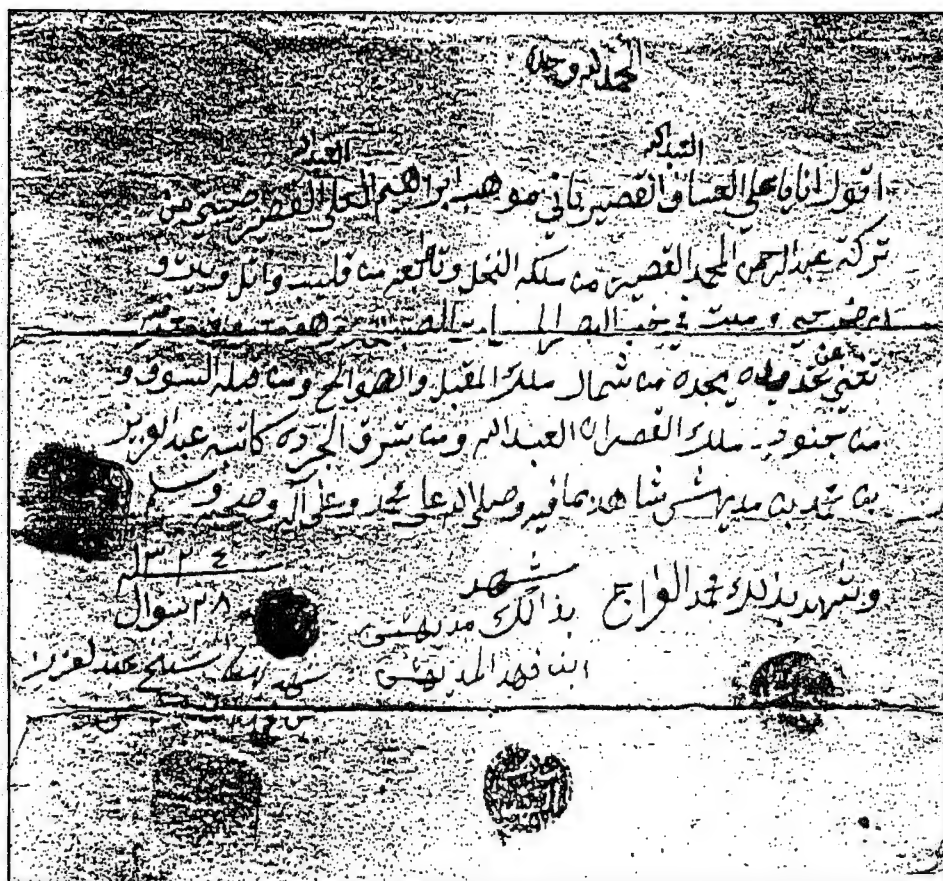 الحمد لله وحده
العبدالله العبدالله
اقول انا يا علي العساف القصير باني موهب ابراهيم العلي القصير نصيبي من
تركة عبدالرحمن المحمد القصير من ملكه النخل وتابعه من قليب واثل وبيت و
في خب
تغني عن تحديده يحده من شمال ملك المقبل والصوالح ومن قبله السوق و
من جنوب ملك القصران العبدالله ومن شرق الجرده كاتبه عبدالعزيز
بن محمد بن مديهش شاهد بما فيه وصلى الله على محمد وعلى آله وصحبه وسلم
١٣٢٤
٢٨ شوال
ويشهد بذلك محمد الفراج
شهد
بذالك مديهش
ابن فهد المديهش
شهد عبدالعزيز